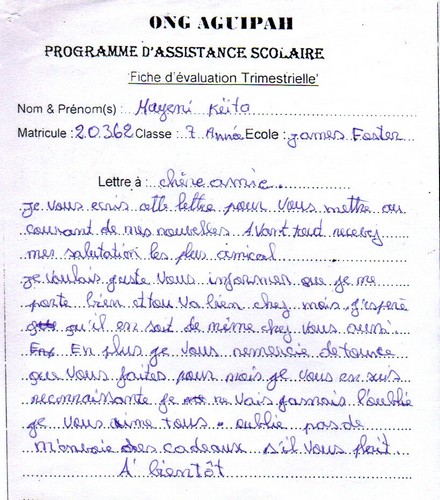 ONG AGUIPAH
PROGRAMME D'ASSISTANCE SCOLAIRE
'Fiche d'évaluation Trimestrielle'
Nom & Prénom(s) : Mayeni Keita
Matricule : 20362 Classe : 7 Année Ecole : James Foster
Lettre à : chère amie
je vous ecris cette lettre pour vous mettre au
courant de mes nouvelles Avant tout recevez
mes salutation les plus amical
je voulais juste vous informer que je me
porte bien et tou va bien chez mois j'esperé
qu'il en soit de même chez vous aussi.
En plus je vous remercie de touce
que vous faites pour mois je vous en suis
reconnaissante je ne vais jasmais l'oublié
je vous aime tous. oublié pas de
m'envoie des cadeaux s'il vous plait.
A' bientôt